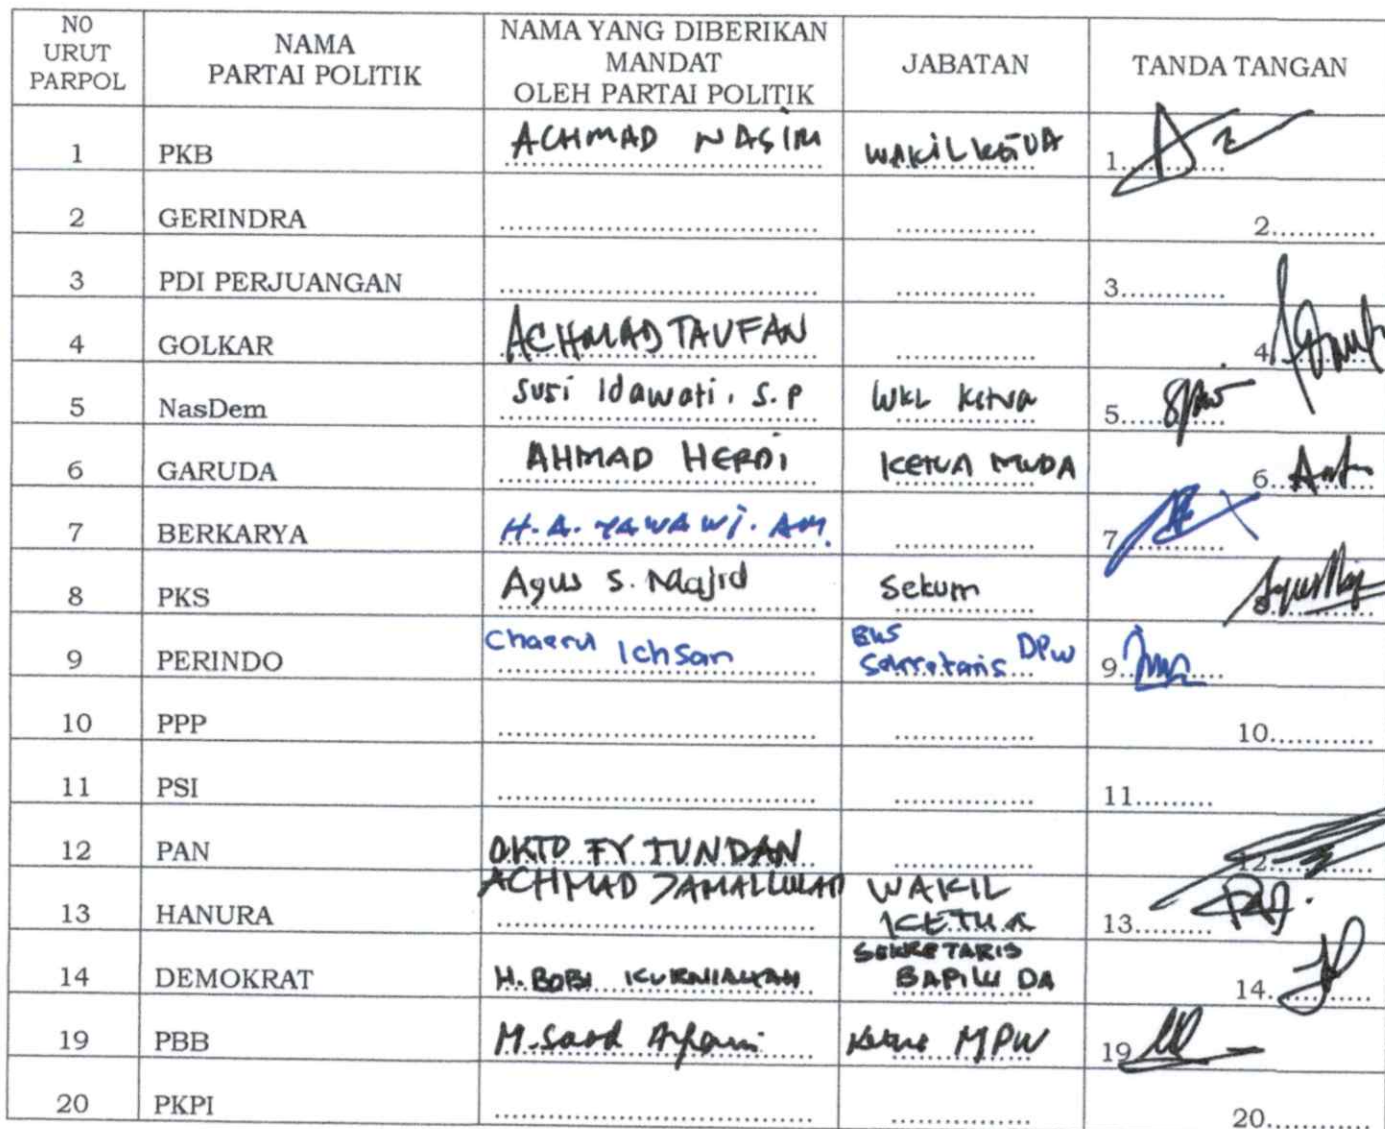 NO URUT PARPOL NAMA PARTAI POLITIK NAMA YANG DIBERIKAN MANDAT OLEH PARTAI POLITIK JABATAN TANDA TANGAN
1 PKB ACHMAD NASIM WAKIL KETUA 1...........
2 GERINDRA .............................. ............. 2...........
3 PDI PERJUANGAN .............................. ............. 3...........
4 GOLKAR ACHMAD TAUFAN ............. 4...........
5 NasDem Susi Idawati, S.P WKL Ketua 5...........
6 GARUDA AHMAD HERDI KETUA MUDA 6...........
7 BERKARYA H. A. ............. 7...........
8 PKS Agus S. Madjid Sekum
9 PERINDO Chaerul Ichsan Sekretaris DPW 9...........
10 PPP .............................. ............. 10...........
11 PSI .............................. ............. 11.........
12 PAN OKTO FY TUNDAN ............. 12
13 HANURA ACHMAD WAKIL KETUA 13.........
14 DEMOKRAT H. BOBI KURNIAWAN SEKRETARIS BAPILU DA 14...........
19 PBB M. Saad Ketua MPW 19
20 PKPI .............................. ............. 20...........